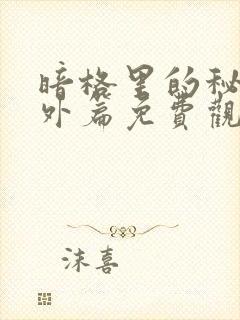 暗格里的秘
外篇免費觀
沫喜